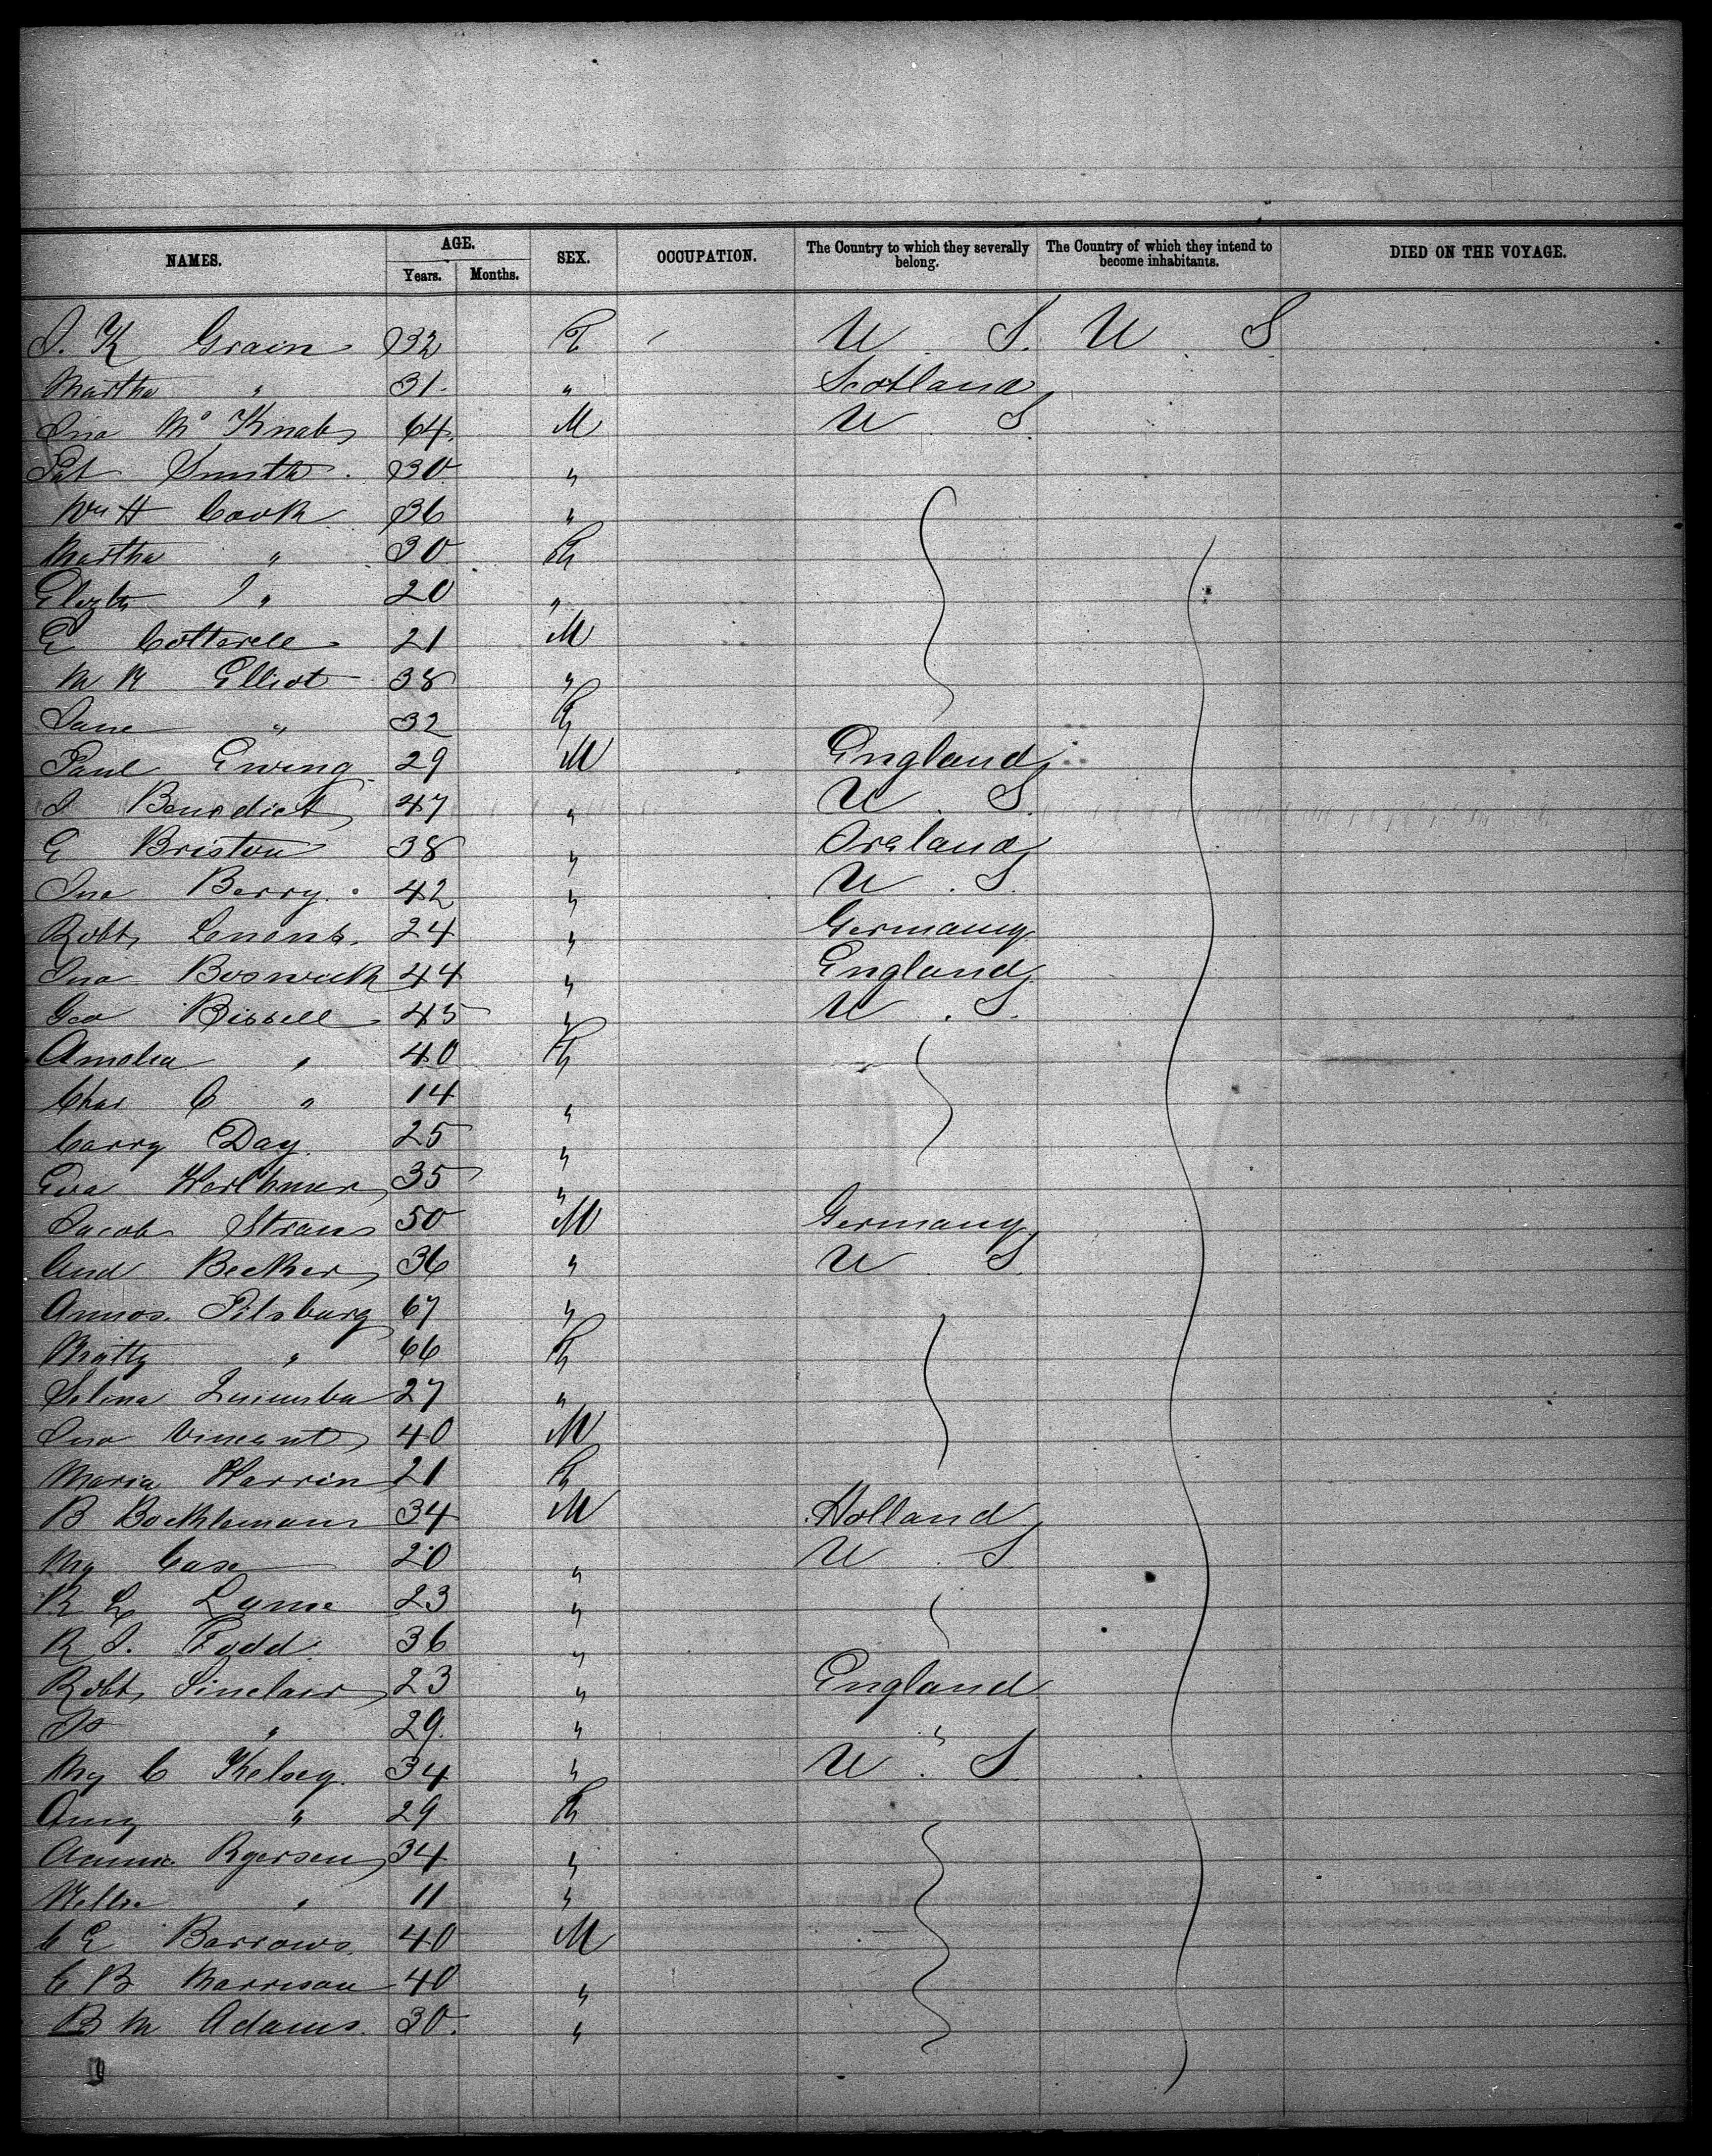 NAMES. AGE. SEX. OCCUPATION. The Country to which they severally belong. The Country of which they intend to become inhabitants. DIED ON THE VOYAGE.
Years. Months.
J. K Grain 32 F U. S. U. S
Martha " 31 " Scotland
Jno Mc Knab 64 M U. S.
Pat Smith 30 "
Wm H Cook 36 "
Martha " 30 F
Elizbth J " 20 "
E Cotterell 21 M
M R Elliot 38 "
Jane " 32 F
Paul Ewing 29 M England
J Benedict 47 " U. S.
E Bristow 38 " Ireland
Jno Berry. 42 " U. S.
Robt 24 " Germany
Jno Boswick 44 " England
Geo Bissell 45 " U. S.
Amelia " 40 F
Chas C " 14 "
Carry Day. 25 "
Eva 35 "
Jacob Straus 50 M Germany
And Becker 36 " U. S.
Pilsburg 67 "
" 66 F
Selina 27 "
Jno Vincent 40 M
Maria Harrin 21 F
B 34 M Holland
Case 20 " U. S
R L 23 "
R J. Todd. 36 "
Robt Sinclair 23 " England
" 29. " "
C Kelsey. 34 " U. S.
Amy " 29 F
Ryersen 34 "
Nellie " 11 "
C E Barrows. 40 M
C B Morrison 40 "
B M Adams. 30. "